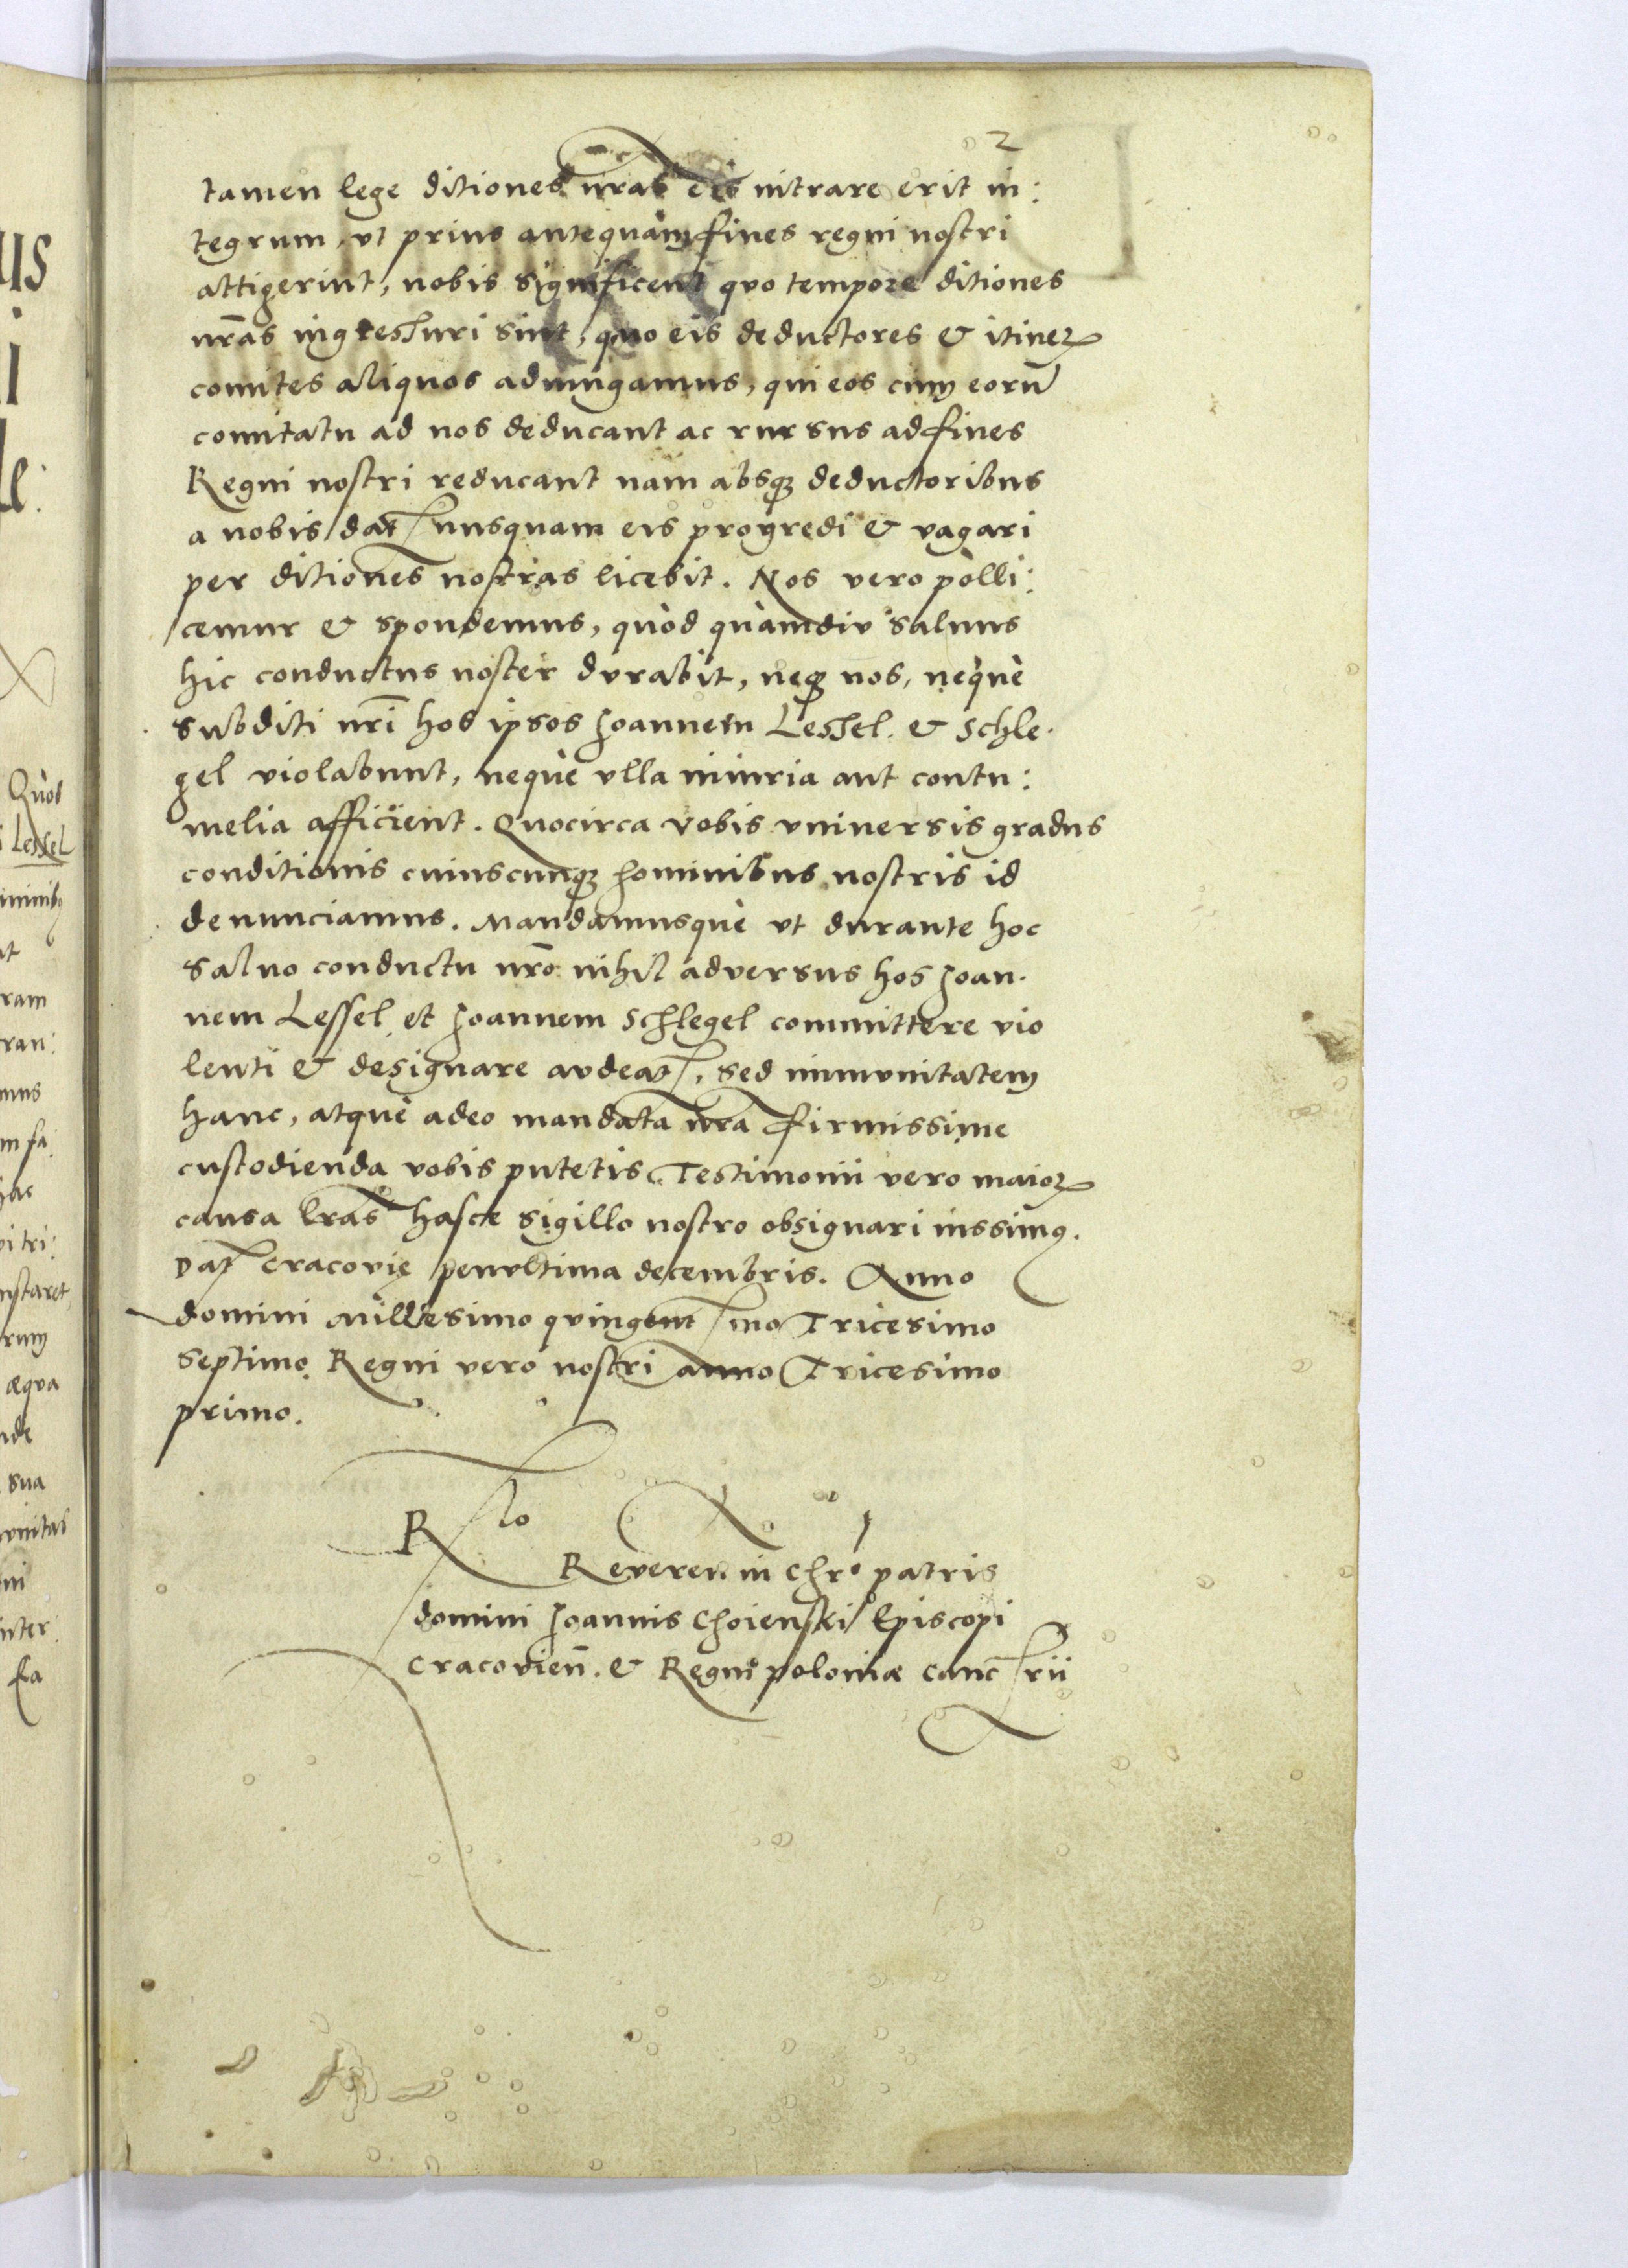 2
tamen lege ditiones nr̃as eis intrare erit in:
tegrum, vt prius antequàm fines regni nostri
attigerint, nobis significent quo tempore ditiones
nr̃as ingressuri sint, quo eis deductores & itineꝝ
comites aliquos adiungamus, qui eos cum eorũ
comitatu ad nos deducant ac rursus ad fines
Regni nostri reducant nam absqꝫ deductoribus
a nobis dat nusquam eis progredi & vagari
per ditiones nostras licebit. Nos vero polli:
cemur & spondemus, quòd quàmdiu saluus
hic conductus noster durabit, neqꝫ nos, nequè
subditi nr̃i hos ipsos Joannem Lessel. & Schle.
gel violabunt, nequè vlla iniuria aut contu:
melia afficient. Quocirca vobis vniuersis gradus
conditionis cuiuscunqꝫ hominibus nostris id
denunciamus. Mandamusquè vt durante hoc
saluo conductu nr̃o nihil aduersus hos Joan.
nem Lessel et Joannem Schlegel committere vio
lenti & designare audeat, sed immunitatem
hanc, atquè adeo mandata nr̃a firmissime
custodienda vobis putetis Testimonii vero maioꝝ
causa l̃ras hasce sigillo nostro obsignari iussimꝰ.
Dat Cracovię penvltima decembris. Anno
domini Millesimo quingent mo Tricesimo
septimo. Regni vero nostri anno Tricesimo
primo.
R lo
Reveren in Chr̃o patris
domini Joannis Choienski Episcopi
Cracovieñ. & Regni poloniæ canc rii
Quòd
Lessel
ram
ran:
mus
m fa:
hac
i tri:
nstaret
rum
æqva
nde
sua
vnitas
ni
nter
fa